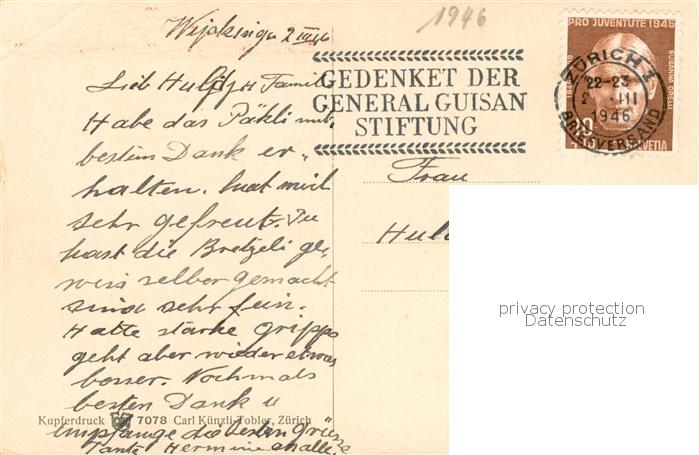 1946
2 III 46
PRO JUVENTUTE 1945
SUSANNA ORELLI
ZÜRICH 1
22-23
2. III
1946
BRIEFVERSAND
10
HELVETIA
GEDENKET DER
GENERAL GUISAN
STIFTUNG
Lieb Huldy u Famili
Habe das Päkli mit
bestem Dank er„
halten. hat mich
sehr gefreut. Du
hast die Bretzeli ge„
wiss selber gemacht
sind sehr fein.
Hatte starke Grippe
geht aber wieder etwas
besser. Nochmals
besten Dank u
empfange die besten Grüsse
Tante Hermine
Frau
Hul
Kupferdruck 7078 Carl Künzli-Tobler, Zürich
privacy protection
Datenschutz